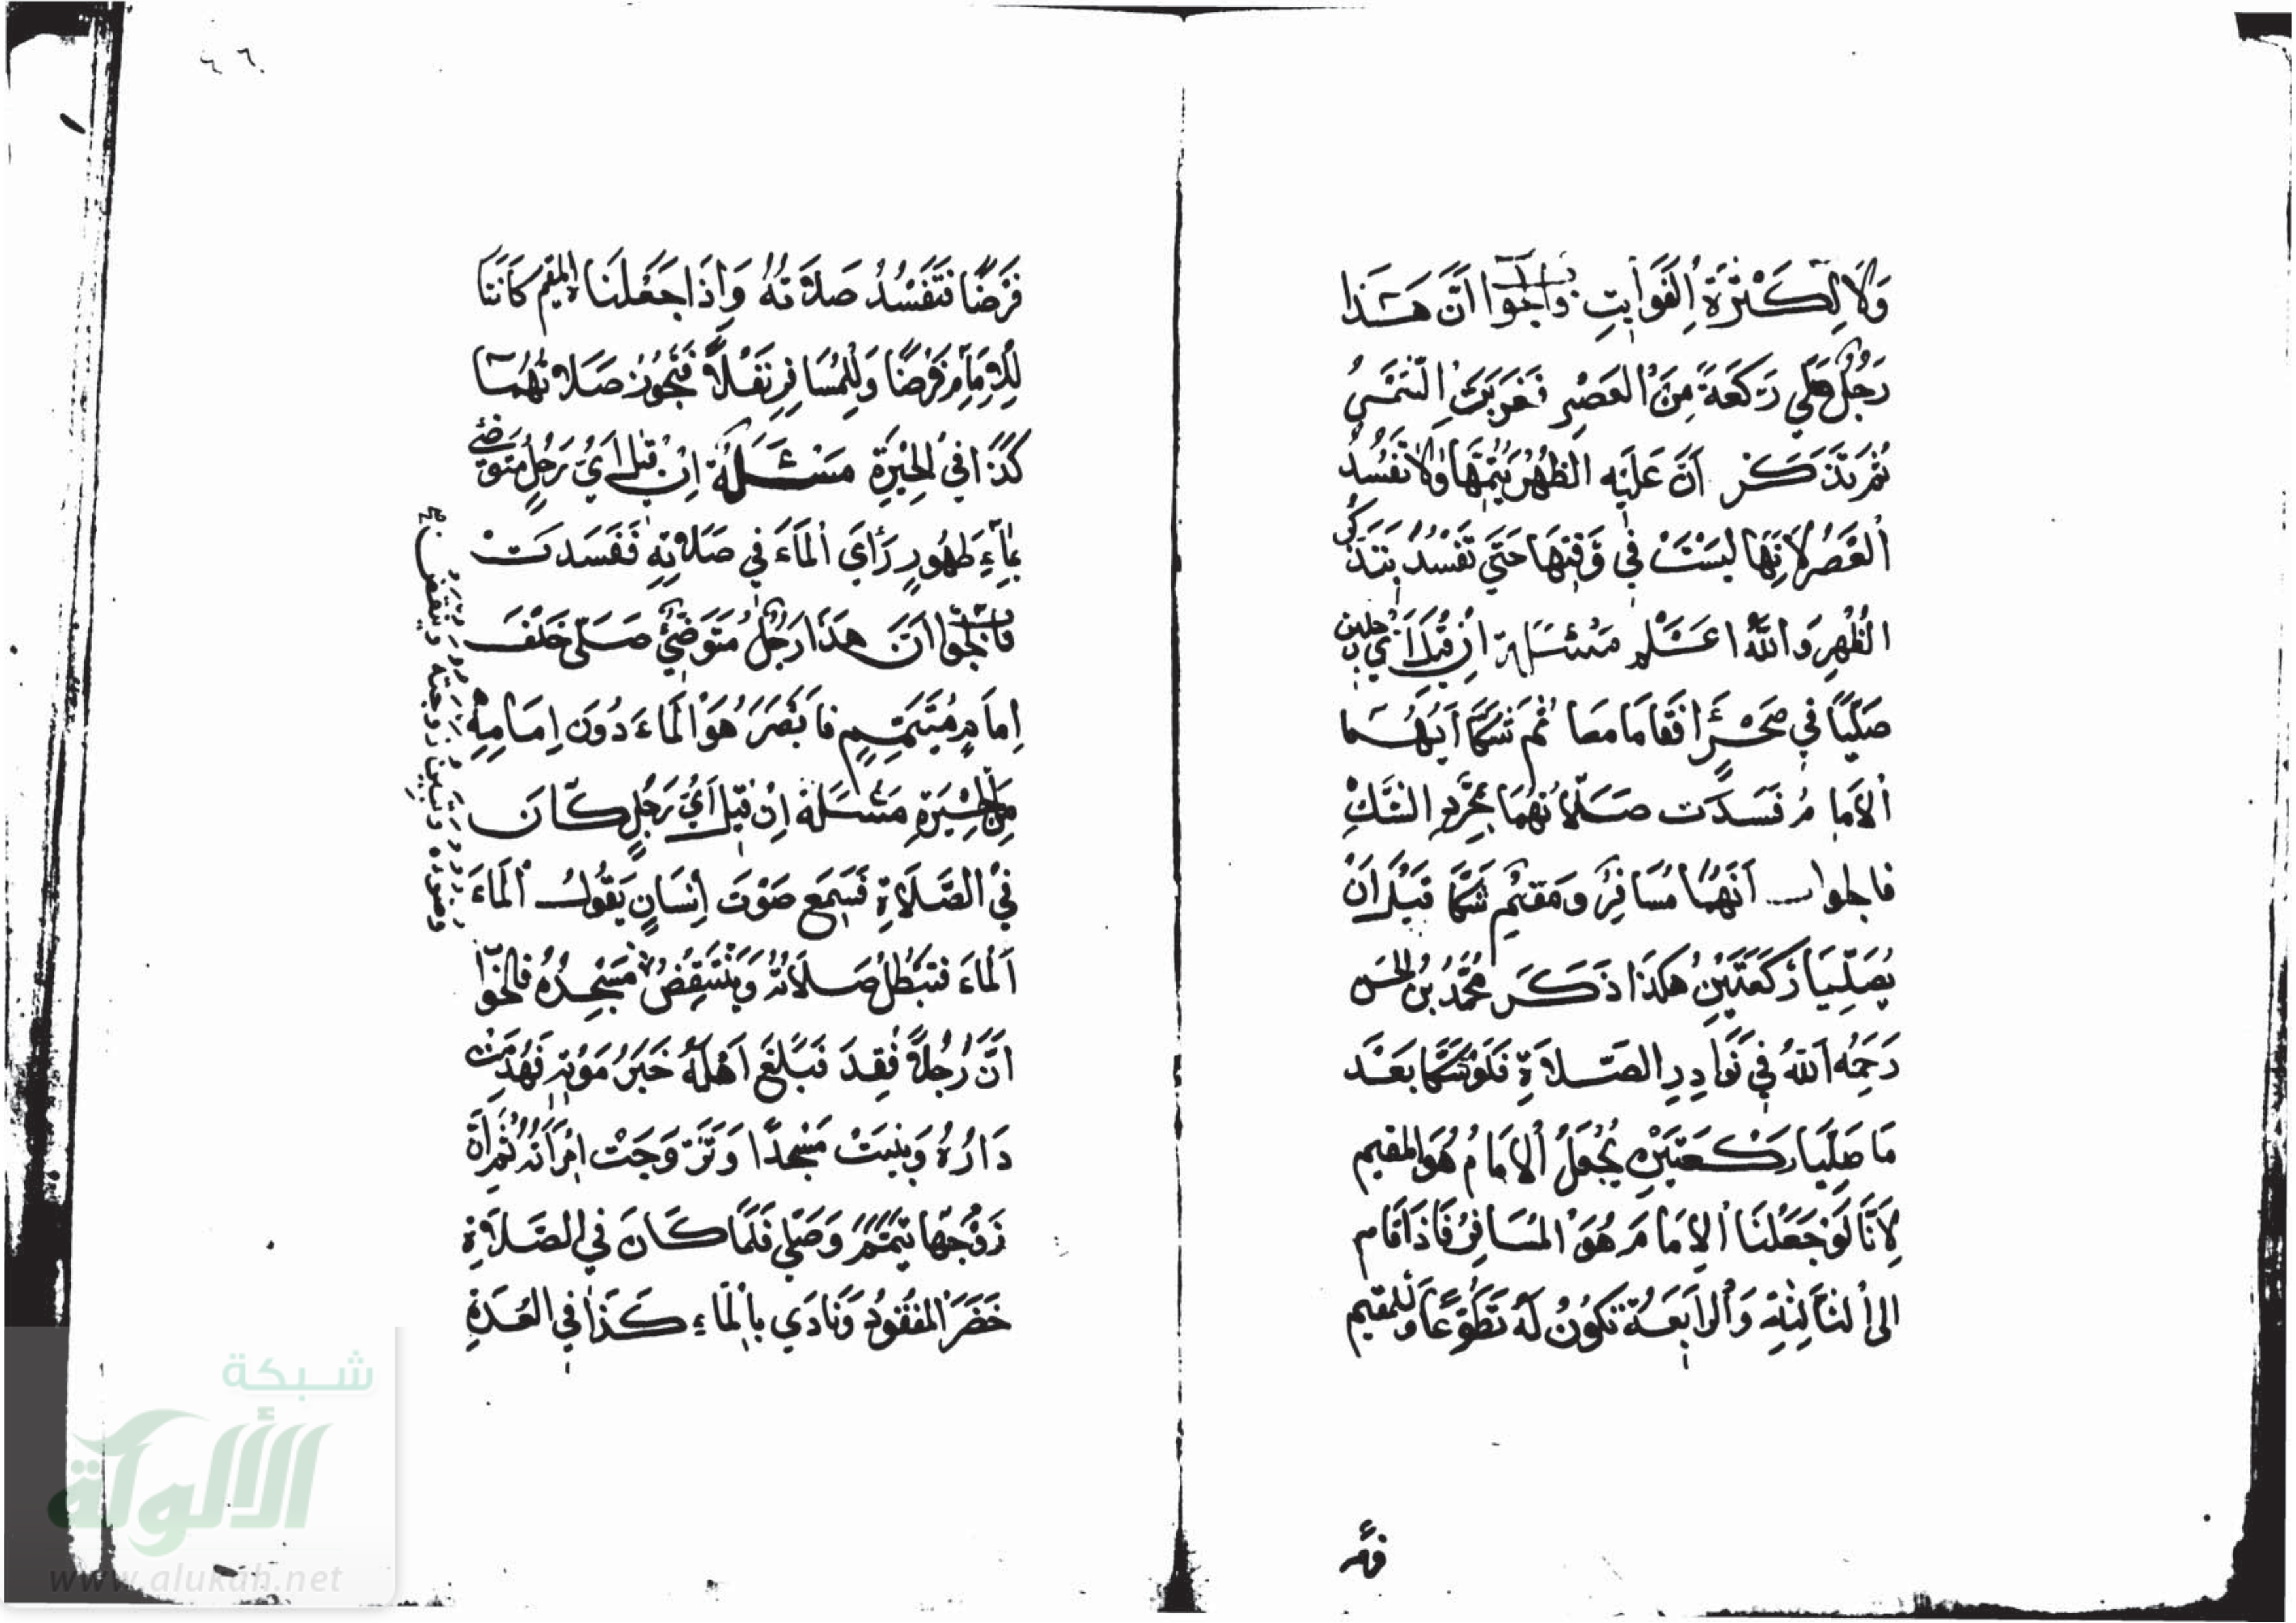 وَلَا لِكَثْرَةِ الفَوَايتِ فالجواب اَنَّ هَذَا
رَجُلٌ صَلّي رَكعَةً مِنَ العَصْرِ فَغَرَبَتِ الشَمْسُ
ثُمَّ تَذَكَّرَ اَنَّ عَلَيْهِ الظُهْرَ يُتِمُّهَا وَلَا تَفْسُدُ
العَصْرُ لِاَنَّهَا لَيسَتْ في وَقتِهَا حَتَي تَفْسُدُ بتَذَكُّرِ
الظُهْرِ وَاللهُ اعْلم مَسْئَلة اِن قيلَ اَيُّ رجلين
صَلَّيَا في صَحْرَاءٍ فَقَامَا مَعا ثُمَّ شَكَّا اَيُّهُمَا
الاِمَامُ فَسَدَت صَلاتُهُمَا بمُجَرَّدِ الشَّكِّ
فالجواب اَنَّهُمَا مُسَافِرٌ وَمُقيمٌ شَكَّا قَبْلَ اَنْ
يُصَلِّيَا رَكعَتَيْنِ هَكَذَا ذَكَرَ مُحَمَّدُ بْنُ الحسَن
رَحِمَهُ اللهُ في نَوَادِرِ الصَّلَاةِ فَلَوْ شَكَّا بَعْدَ
مَا صَلّيَا رَكعَتَيْنِ يُجْعَلُ الاِمَامُ هُوَ المقيم
لِاَنَّا لَوْ جَعَلْنَا الاِمَامَ هُوَ المُسَافِرُ فَاذَا قَام
الي الثَالِثَةِ وَالرَابعَةِ تَكُونُ لَهُ تَطَوُّعًا وَللمقيم
فرضًا
فَرْضًا فَتَفْسُدُ صَلَاتُهُ وَاِذَا جَعَلْنَا المقيم كَانَتَا
لِلْاِمَامِ فَرْضًا وَلِلْمُسَافِرِ نَفْلًا فَتَجُوزُ صَلاتُهُمَا
كَذَا في الحِيْرَةِ مَسْئَلَة اِنْ قيلَ اَيُّ رَجُلٍ مُتَوَضِّئٍ
بمَاءٍ طَهُورٍ رَأيَ المَاءَ في صَلَاتِهِ فَفَسَدَتْ
فالجواب اَنَّ هَذَا رَجُلٌ مُتَوَضِّئٌ صَلّي خَلْفَ
اِمَامٍ مُتَيَمِّمٍ فَاَبْصَرَ هُوَ المَاءَ دُونَ اِمَامِهِ
مِنَ الحِيْرَةِ مَسْئَلَة اِن قيل اَيُّ رَجُلٍ كَانَ
في الصَّلَاةِ فَسَمِعَ صَوْتَ اِنسَانٍ يَقُولُ المَاءَ
المَاءَ فَتَبْطُلُ صَلَاتُهُ وَيَنْتَقِضُ مَسْجِدُهُ فالجوَاب
اَنَّ رَجُلًا فُقِدَ فَبَلَغَ اَهْلَهُ خَبَرُ مَوْتِهِ فَهُدِمَتْ
دَارُهُ وَبُنِيَتْ مَسْجِدًا وَتَزَوَّجَتْ امْرَأَتُهُ ثُمَّ اِنَّ
زَوْجَهَا تَيَمَّمَ وَصَلّي فَلَمَّا كَانَ في الصَّلَاةِ
حَضَرَ المَفْقُودُ وَنَادَي بالمَاءِ كَذَا في العُدَّةِ
شبكة
الألوكة
www.alukah.net